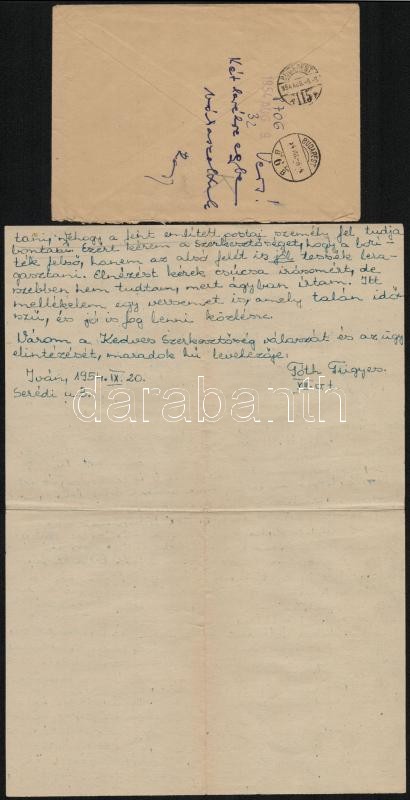 BUDAPEST
1706
32
Vers!
Két levélre egyben
válaszoltunk
BUDAPEST
hogy a fent említett postai személy fel tudja
bontani. Ezért kérem a Szerkesztőséget, hogy a bori-
ték felső, hanem az alsó felét is jól tessék lera-
gasztani. Elnézést kérek csúcsa írásomért, de
szebben nem tudtam, mert ágyban írtam. Itt
mellékelem egy versemet is, amely talán idő-
szű, és jó is fog lenni közlésre.
Várom a Kedves Szerkesztőség válaszát és az ügy
elintézését, maradok hű levelezője:
Tóth Frigyes.
Iván, 1954. IX. 20.
Serédi u.
darabanth